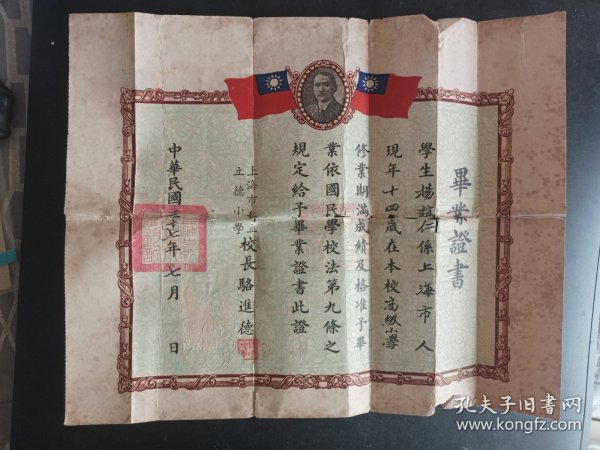 畢業證書
學生楊誼仁係上海市人
現年十四歲在本校高級小學
修業期滿成績及格准予畢
業依國民學校法第九條之
規定給予畢業證書此證
上海市私立
立德小學
校長駱進德
中華民國三十七年七月 日
孔夫子旧书网
www.kongfz.com